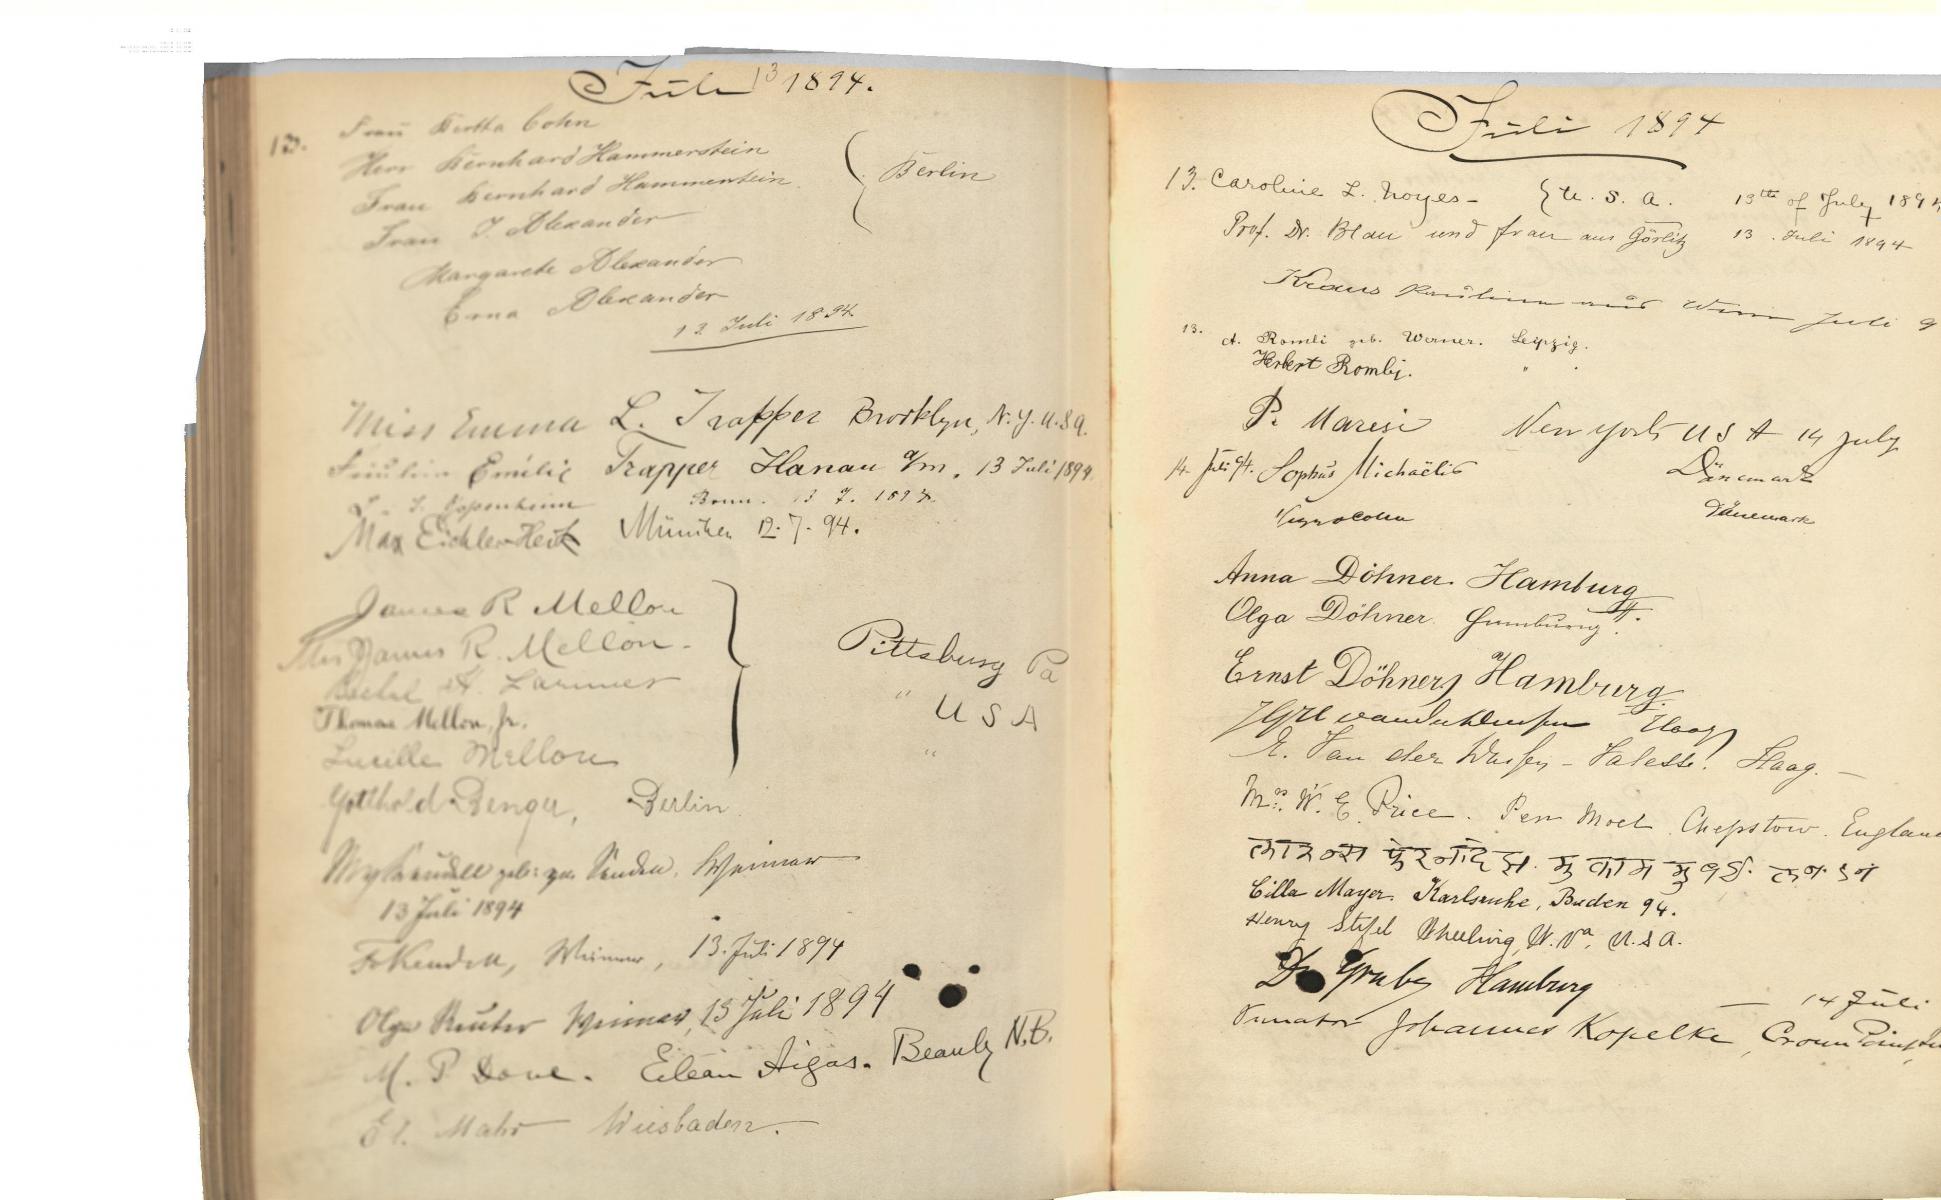 Juli 13 1894.
13. Frau Bertha Cohn
Herr Bernhard Hammerstein
Frau Bernhard Hammerstein Berlin
Frau J. Alexander
Margarete Alexander
Erna Alexander
13 Juli 1894
Miss Emma L. Trapper Brooklyn, N.Y. U.S.A.
Fräulein Emilie Trapper Hanau a/m. 13 Juli 1894
Oppenheim Bonn. 13 7. 1894.
Max Eichler München 12.7.94.
James R Mellon
Mrs James R. Mellon Pittsburg Pa
Larimer " U S A
Thomas Mellon, Jr.
Lucille Mellon "
Gotthold Benger, Berlin
Weimar
13 Juli 1894
Weimar, 13. Juli 1894
Olga Reuter Weimar, 13 Juli 1894
M. P Dove. Eilean Aigas. Beauly N.B.
El. Mahr Wiesbaden.
Juli 1894
13. Caroline L. Noyes - U. S. A. 13th of July 1894
Prof. Dr. Blau und Frau aus Görlitz 13. Juli 1894
Kraus Paulina aus Wien Juli 9
13. A. Romli geb. Werner. Leipzig.
Herbert " .
P. Maresi New York U S A 14 July
14. Juli 94. Sophus Michaëlis Dänemark
Dänemark
Anna Döhner. Hamburg
Olga Döhner Hamburg.
Ernst Döhner, Hamburg.
Haag
Van der Haag. -
Mrs. W. E. Price. Pen Moel. Chepstow. England
Cilla Mayer. Karlsruhe, Baden 94.
Henry Stifel Wheeling, W. Va. U.S.A.
Dr Gruby Hamburg
14 Juli
Senator Johannes Kopelke, Crown Point,